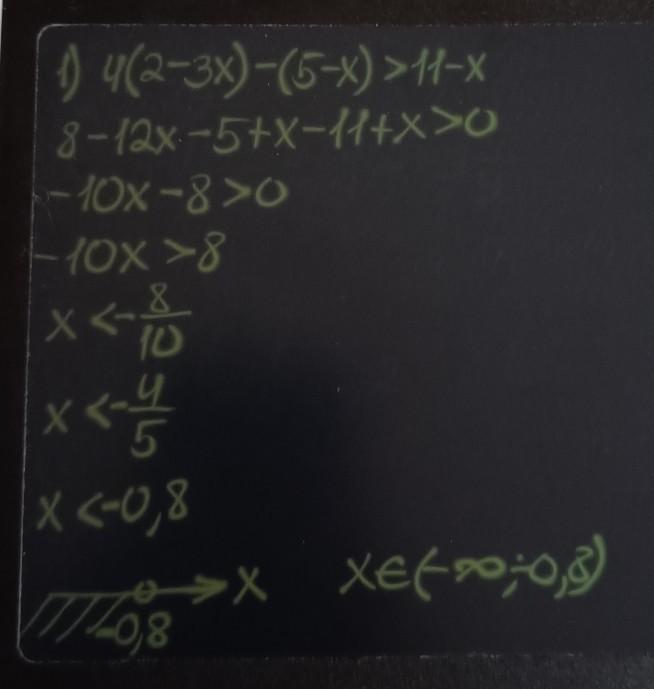 1) 4(2-3x)-(5-x)>11-x
8-12x-5+x-11+x>0
-10x-8>0
-10x>8
x<-8/10
x<-4/5
x<-0,8
x x∈(-∞;-0,8)
-0,8